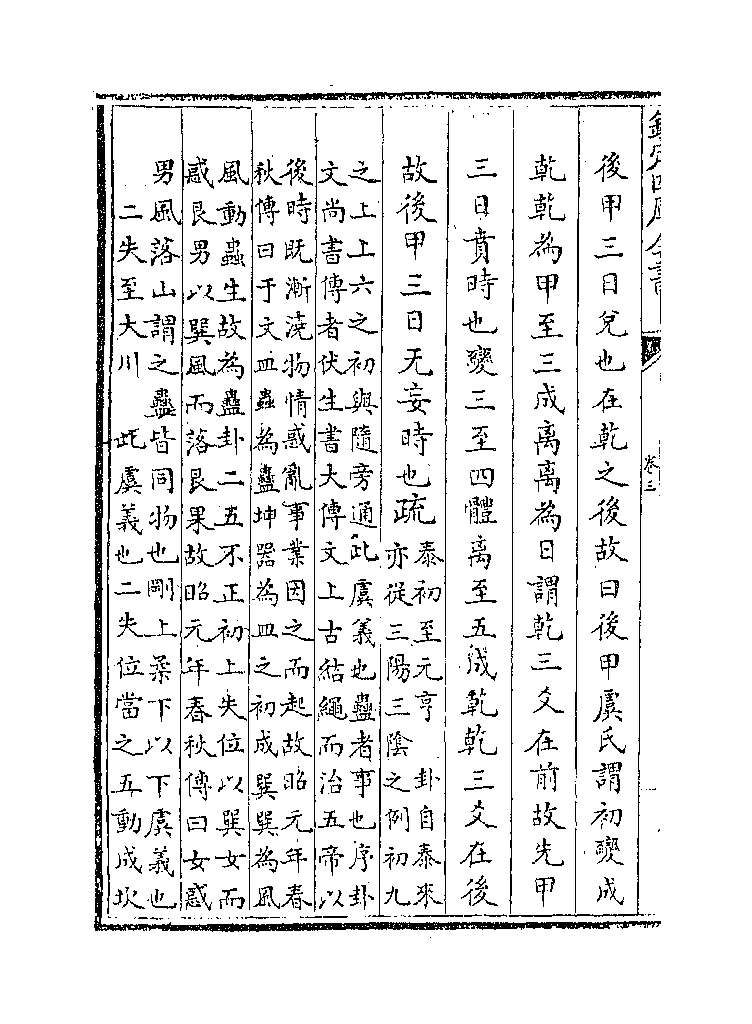 欽定四庫全書
卷三
後甲三日兌也在乾之後故曰後甲虞氏謂初變成
乾乾為甲至三成离离為日謂乾三爻在前故先甲
三日賁時也變三至四體离至五成乾乾三爻在後
故後甲三日无妄時也疏
泰初至元亨 卦自泰來
亦從三陽三陰之例初九
之上上六之初與隨旁通此虞義也蠱者事也序卦
文尚書傳者伏生書大傳文上古結繩而治五帝以
後時既漸澆物情惑亂事業因之而起故昭元年春
秋傳曰于文皿蟲為蠱坤器為皿之初成巽巽為風
風動蟲生故為蠱卦二五不正初上失位以巽女而
惑艮男以巽風而落艮果故昭元年春秋傳曰女惑
男風落山謂之蠱皆同物也剛上柔下以下虞義也
二失至大川 此虞義也二失位當之五動成坎